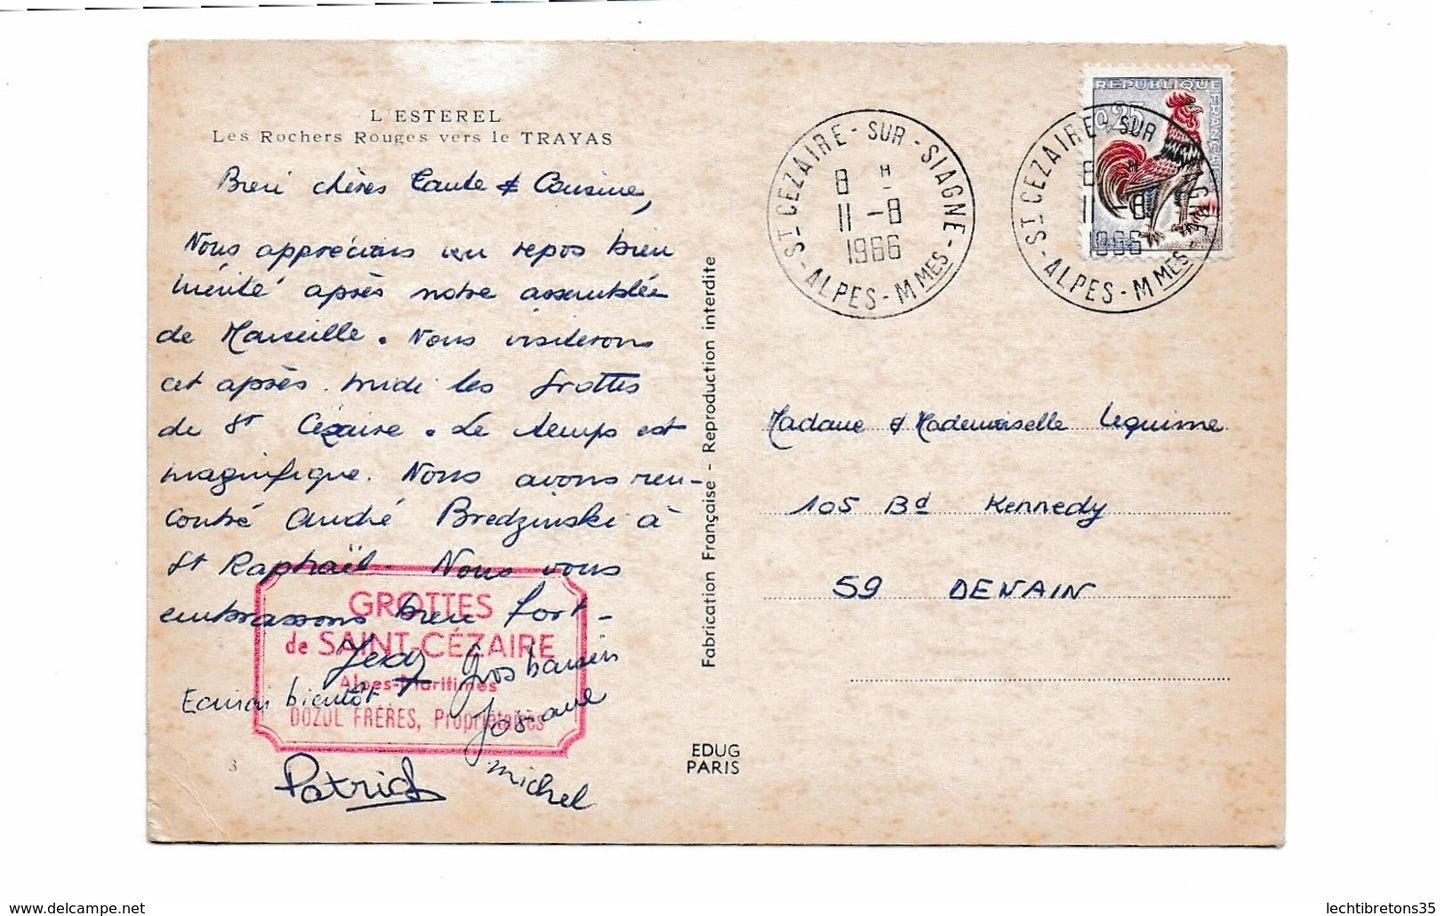 L'ESTEREL
Les Rochers Rouges vers le TRAYAS
Bien chères Tante & Cousine,
Nous apprécions un repos bien
mérité après notre assemblée
de Marseille. Nous visiterons
cet après-midi les grottes
de St Cézaire. Le temps est
magnifique. Nous avons ren-
contré André Bredzinski à
St Raphaël. Nous vous
embrassons bien fort -
GROTTES
de SAINT-CÉZAIRE
Alpes-Maritimes
FRÈRES, Propriétaires
Ecrirai bientôt
Josiane
michel
Patrick
3
Fabrication Française - Reproduction interdite
EDUG
PARIS
ST CEZAIRE-SUR-SIAGNE-
8 H
11 -8
1966
-ALPES-MMES
REPUBLIQUE FRANÇAISE
0,25
ST CEZAIRE-SUR-SIAGNE-
8 H
11 -8
1966
-ALPES-MMES
Madame & Mademoiselle Lequime
105 Bd Kennedy
59 DENAIN
delcampe.net
lechtibretons35